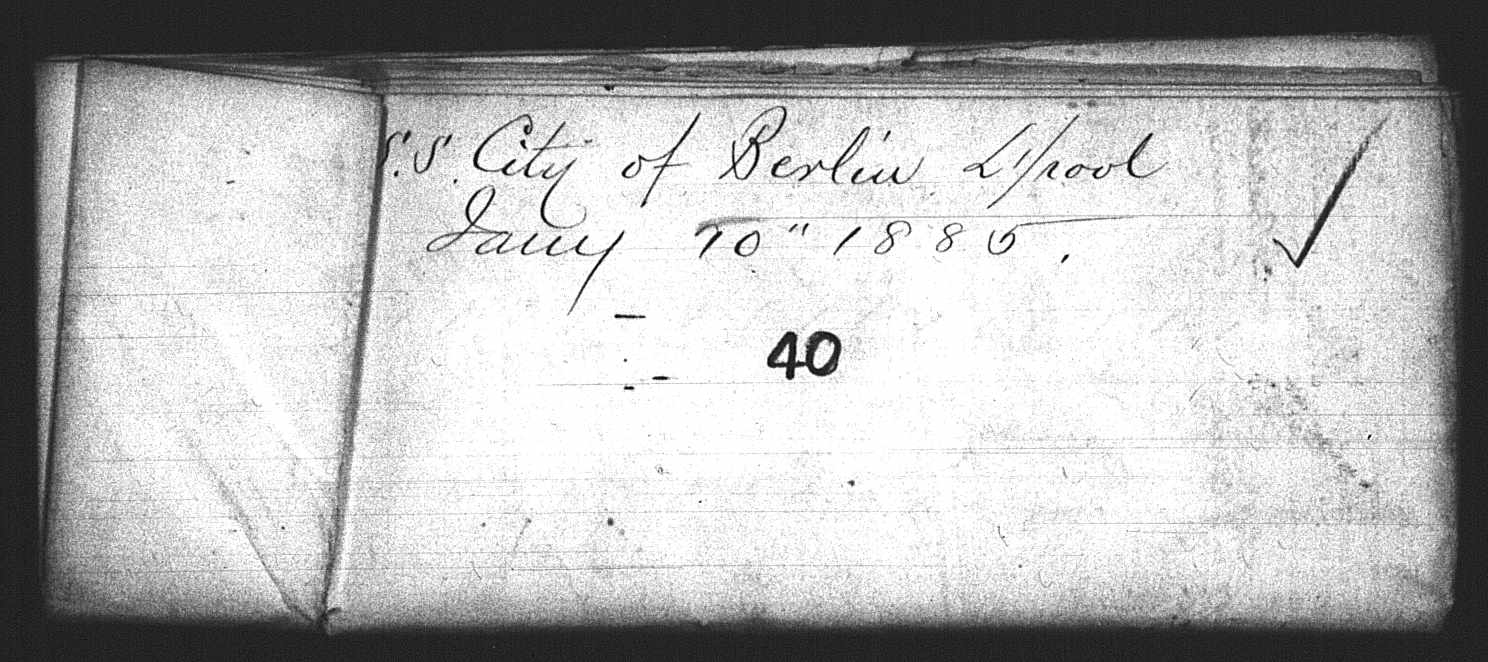 S.S. City of Berlin L'pool
Jany 10" 1885.
40